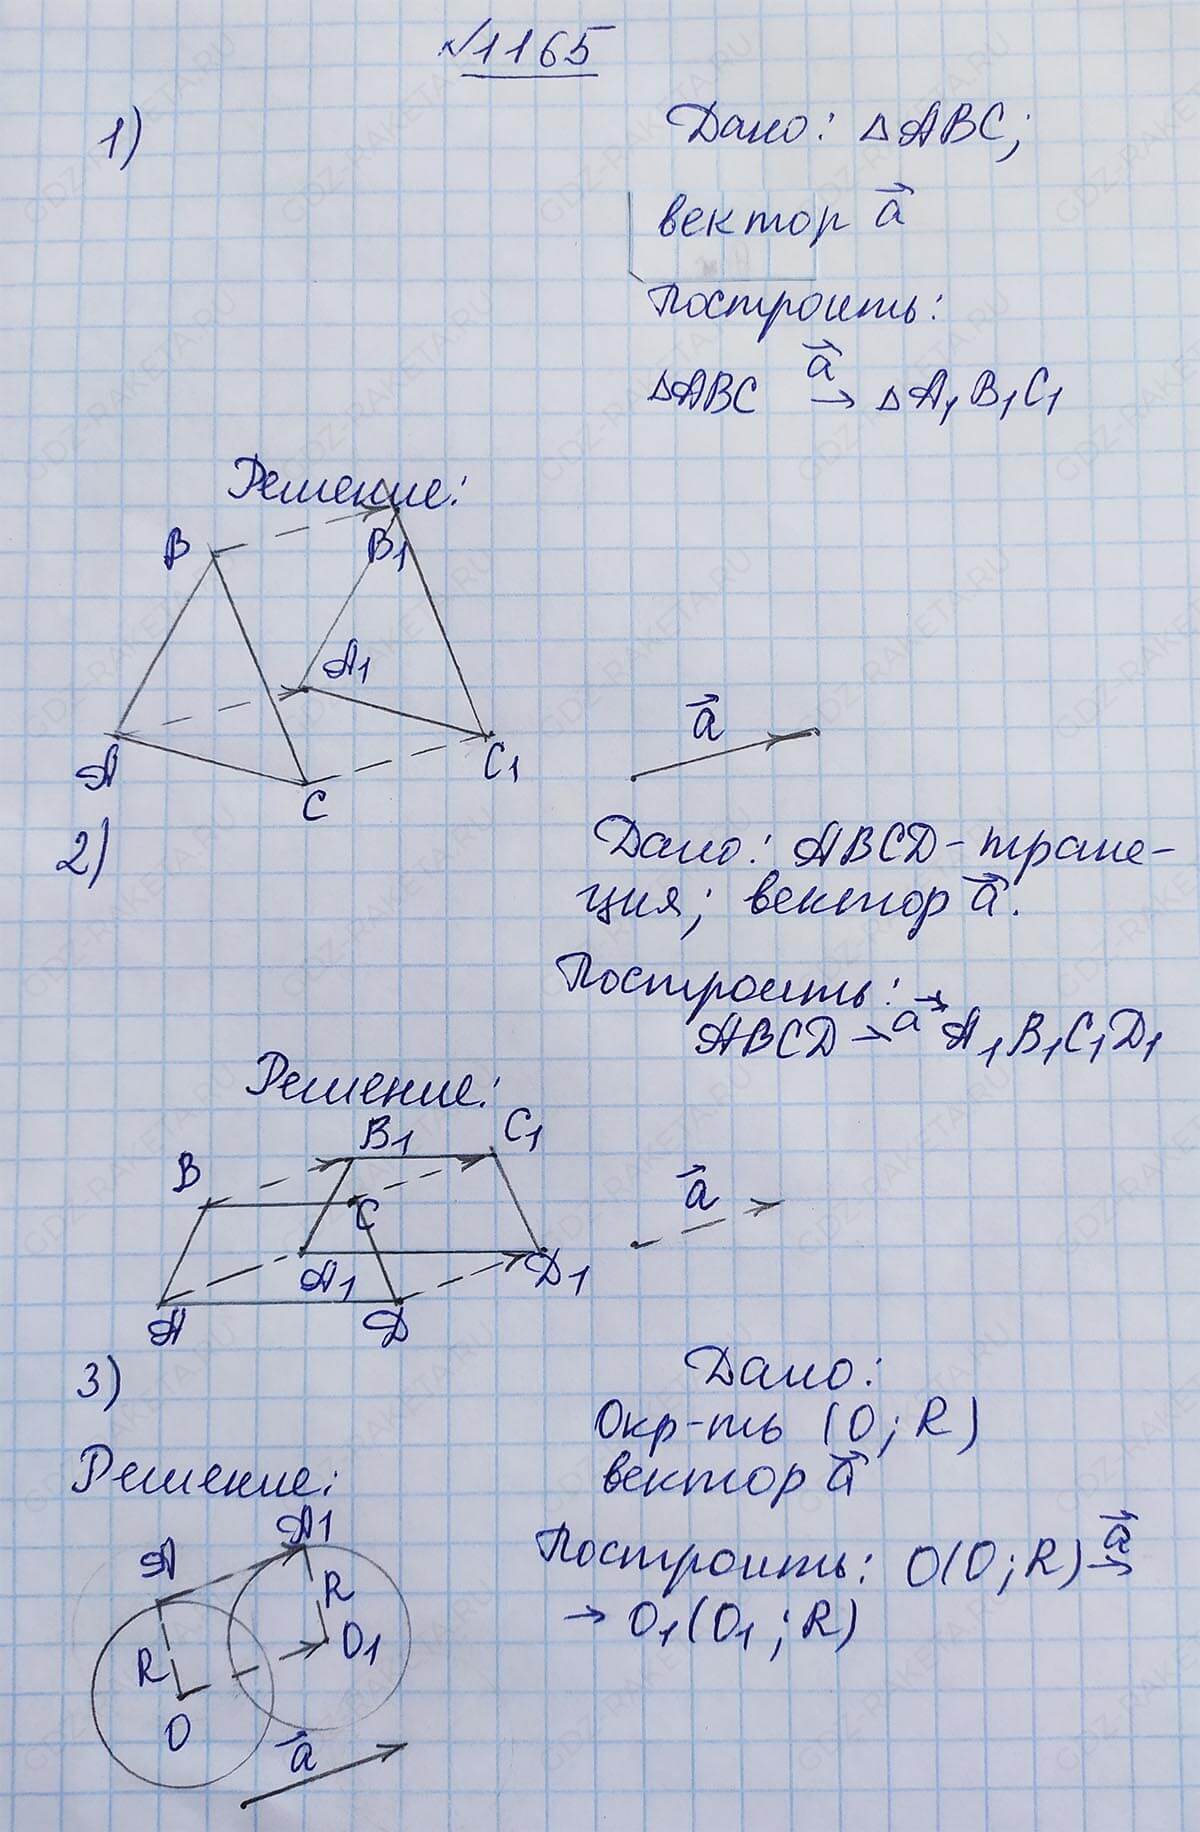 №1165
1)
Дано: △ABC;
вектор a⃗
Построить:
△ABC a⃗→ △A₁B₁C₁
Решение:
B
B₁
A₁
A
C
C₁
a⃗
2)
Дано: ABCD - трапе-
ция; вектор a⃗.
Построить:
ABCD → a⃗ → A₁B₁C₁D₁
Решение:
B
B₁
C₁
C
A
A₁
D
D₁
a⃗
3)
Дано:
Окр-ть (O; R)
вектор a⃗
Построить: O(O; R) a⃗→
→ O₁(O₁; R)
Решение:
A
A₁
R
R
O
O₁
a⃗
GDZ-RAKETA.RU